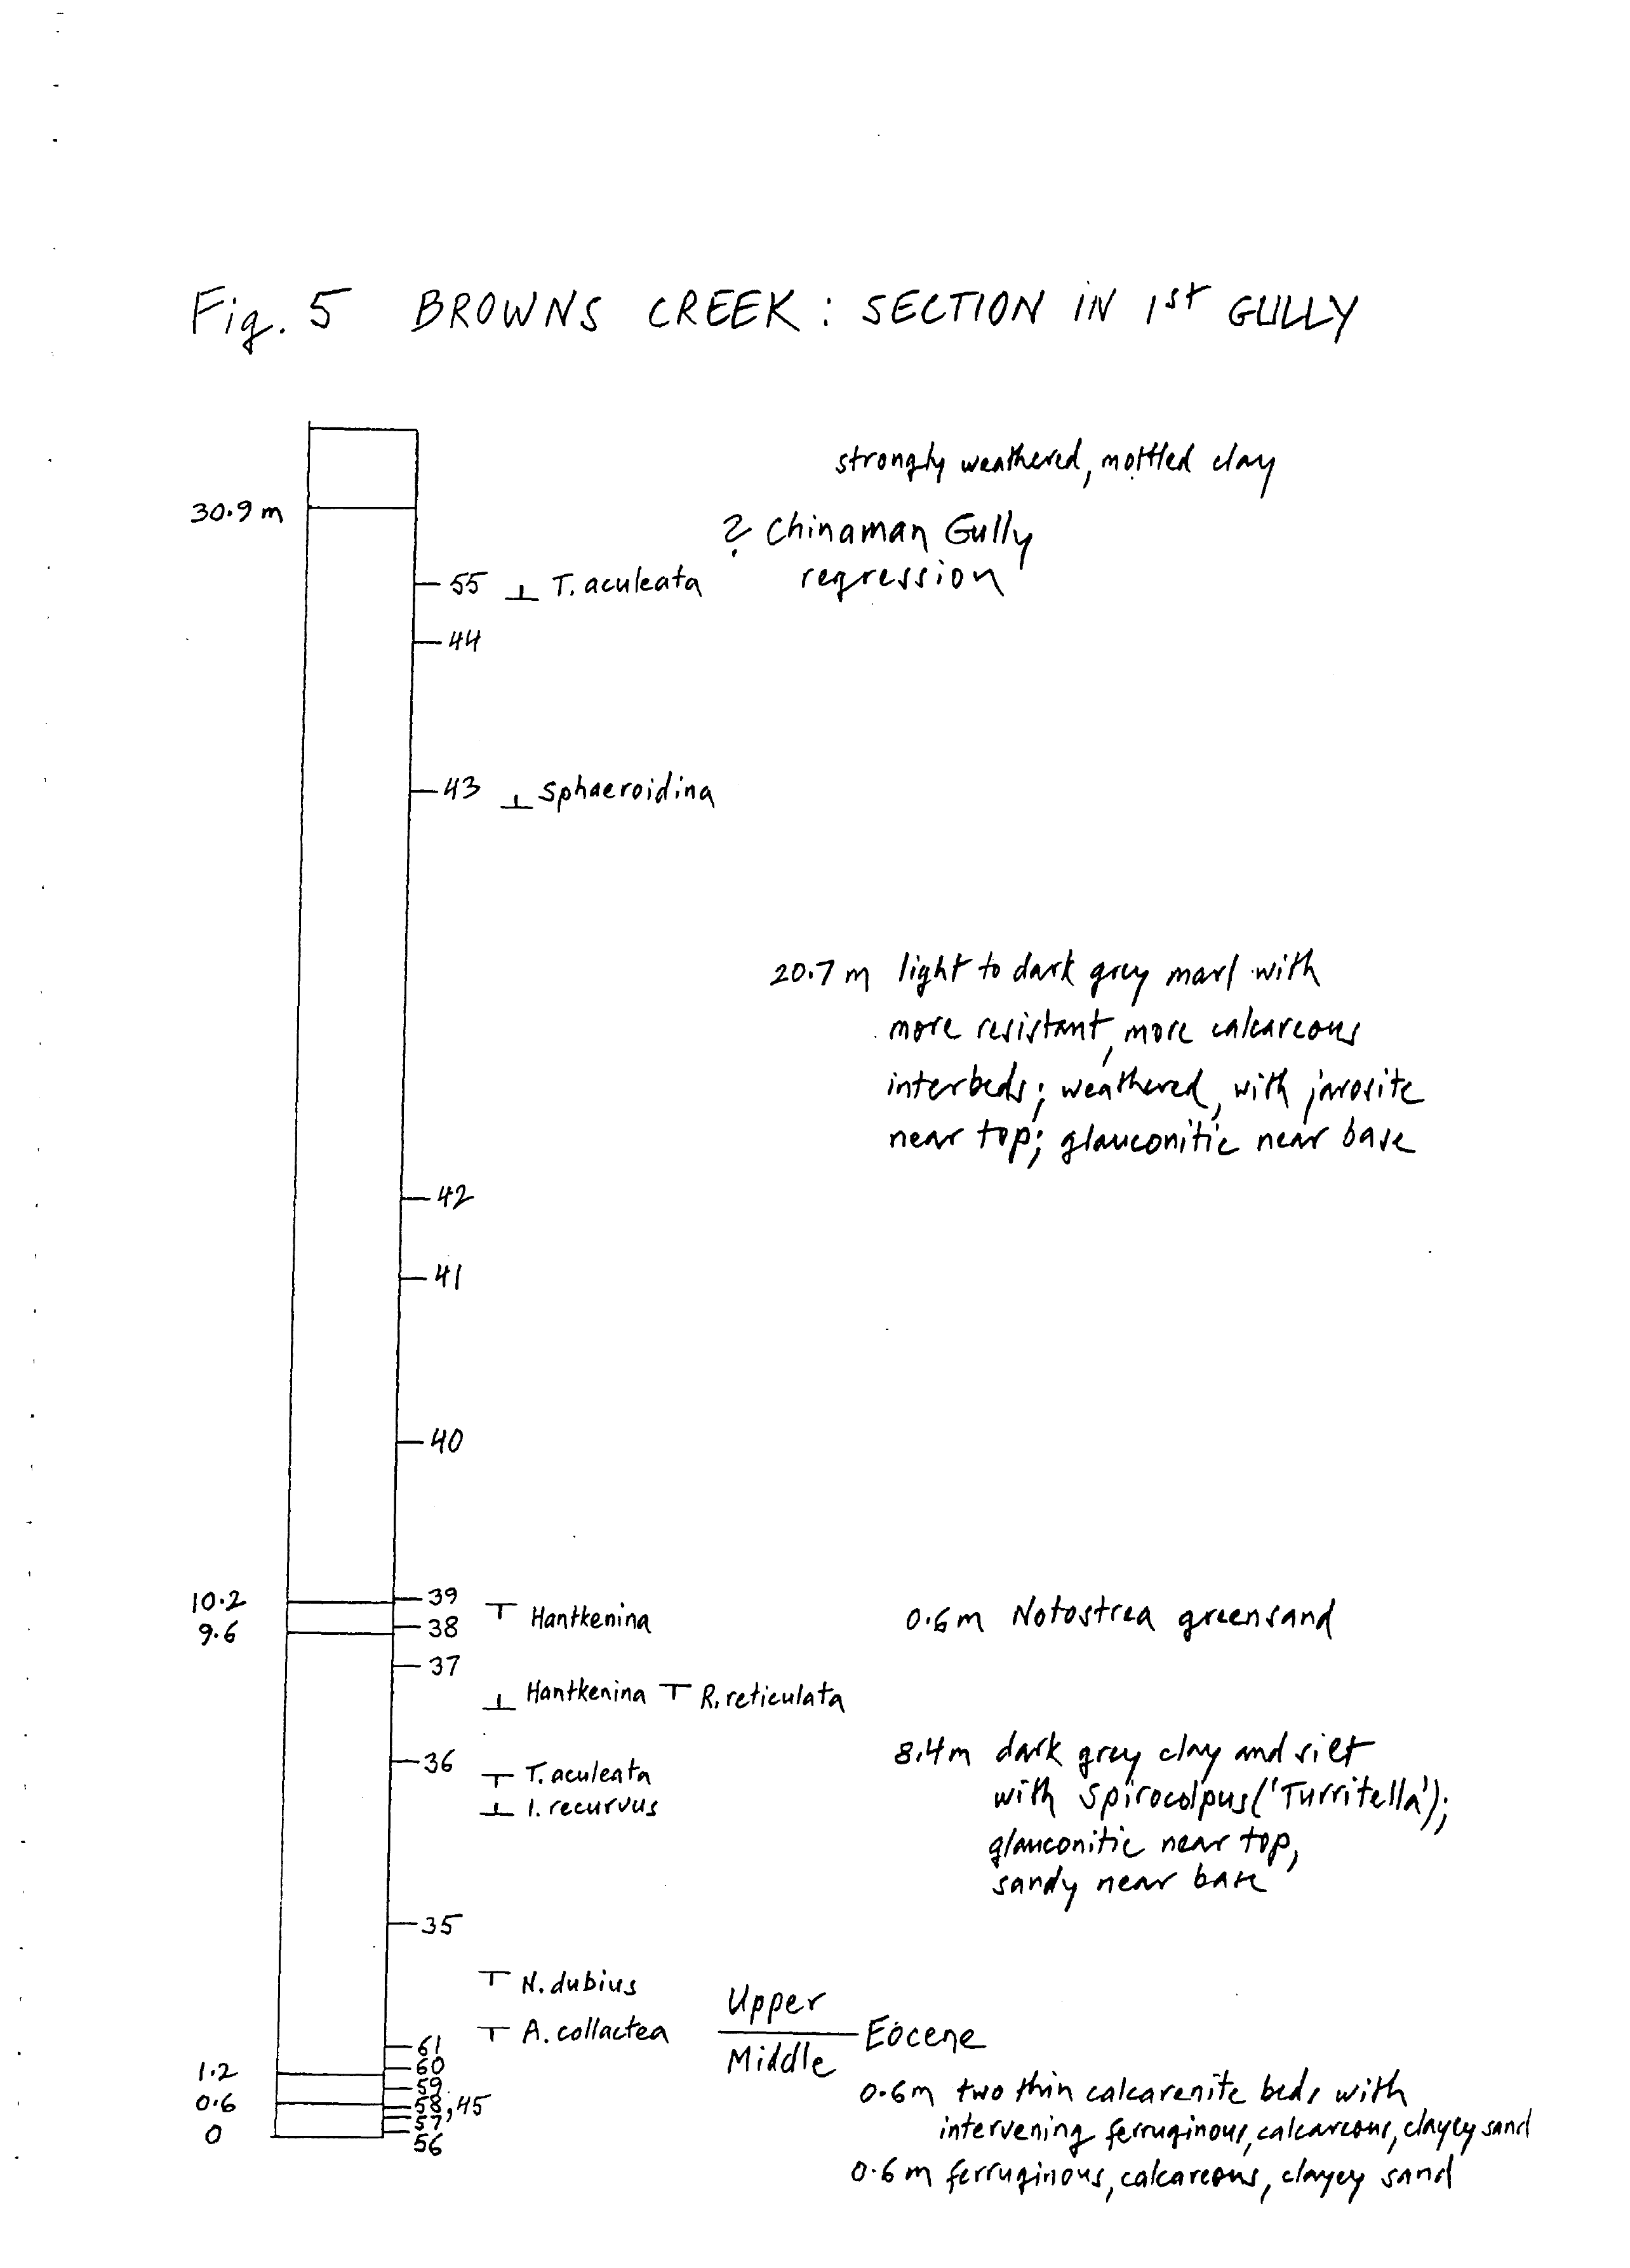 Fig. 5 BROWNS CREEK : SECTION IN 1st GULLY
strongly weathered, mottled clay
30.9 m
? Chinaman Gully
regression
55 ⊥ T. aculeata
44
43 ⊥ Sphaeroidina
20.7 m light to dark grey marl with
more resistant, more calcareous
interbeds; weathered, with jarosite
near top; glauconitic near base
42
41
40
10.2
39
⊤ Hantkenina
0.6 m Notostrea greensand
9.6
38
37
⊥ Hantkenina ⊤ R. reticulata
8.4 m dark grey clay and silt
with Spirocolpus ('Turritella');
glauconitic near top,
sandy near base
36
⊤ T. aculeata
⊥ I. recurvus
35
⊤ N. dubius
⊤ A. collactea
Upper
Middle
Eocene
61
60
1.2
59
0.6
58, 45
57
0
56
0.6 m two thin calcarenite beds with
intervening ferruginous, calcareous, clayey sand
0.6 m ferruginous, calcareous, clayey sand